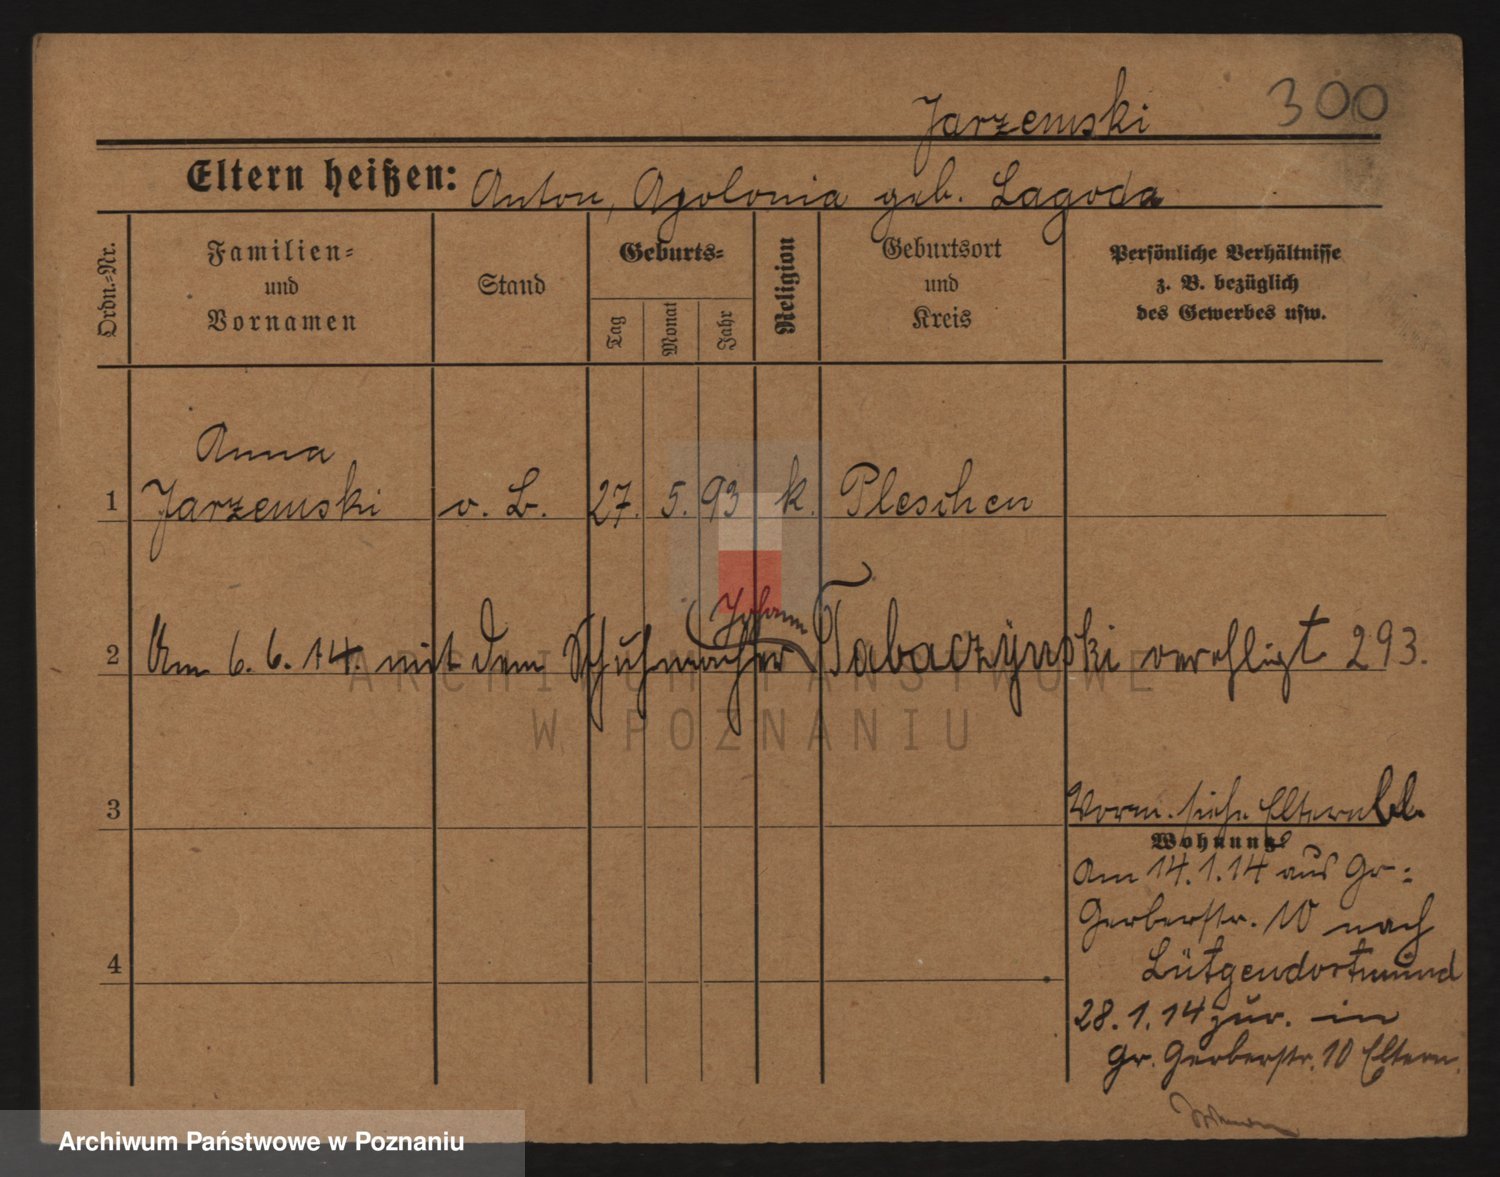 Jarzemski 300
Eltern heißen: Anton, Apolonia geb. Lagoda
Ordn.-Nr.
Familien-
und
Vornamen
Stand
Geburts-
Tag
Monat
Jahr
Religion
Geburtsort
und
Kreis
Persönliche Verhältnisse
z. B. bezüglich
des Gewerbes usw.
Anna
1 Jarzemski v. B. 27. 5. 93 k. Pleschen
Johann
2 Am 6.6.14. mit dem Schuhmacher Tabaczyński verehligt 293.
ARCHIWUM PAŃSTWOWE
W POZNANIU
3
Vorm. siehe Eltern
Wohnung
Am 14.1.14 aus Gr-
Gerberstr. 10 nach
4
Lütgendortmund
28.1.14 zur. in
Gr. Gerberstr. 10 Eltern
Archiwum Państwowe w Poznaniu